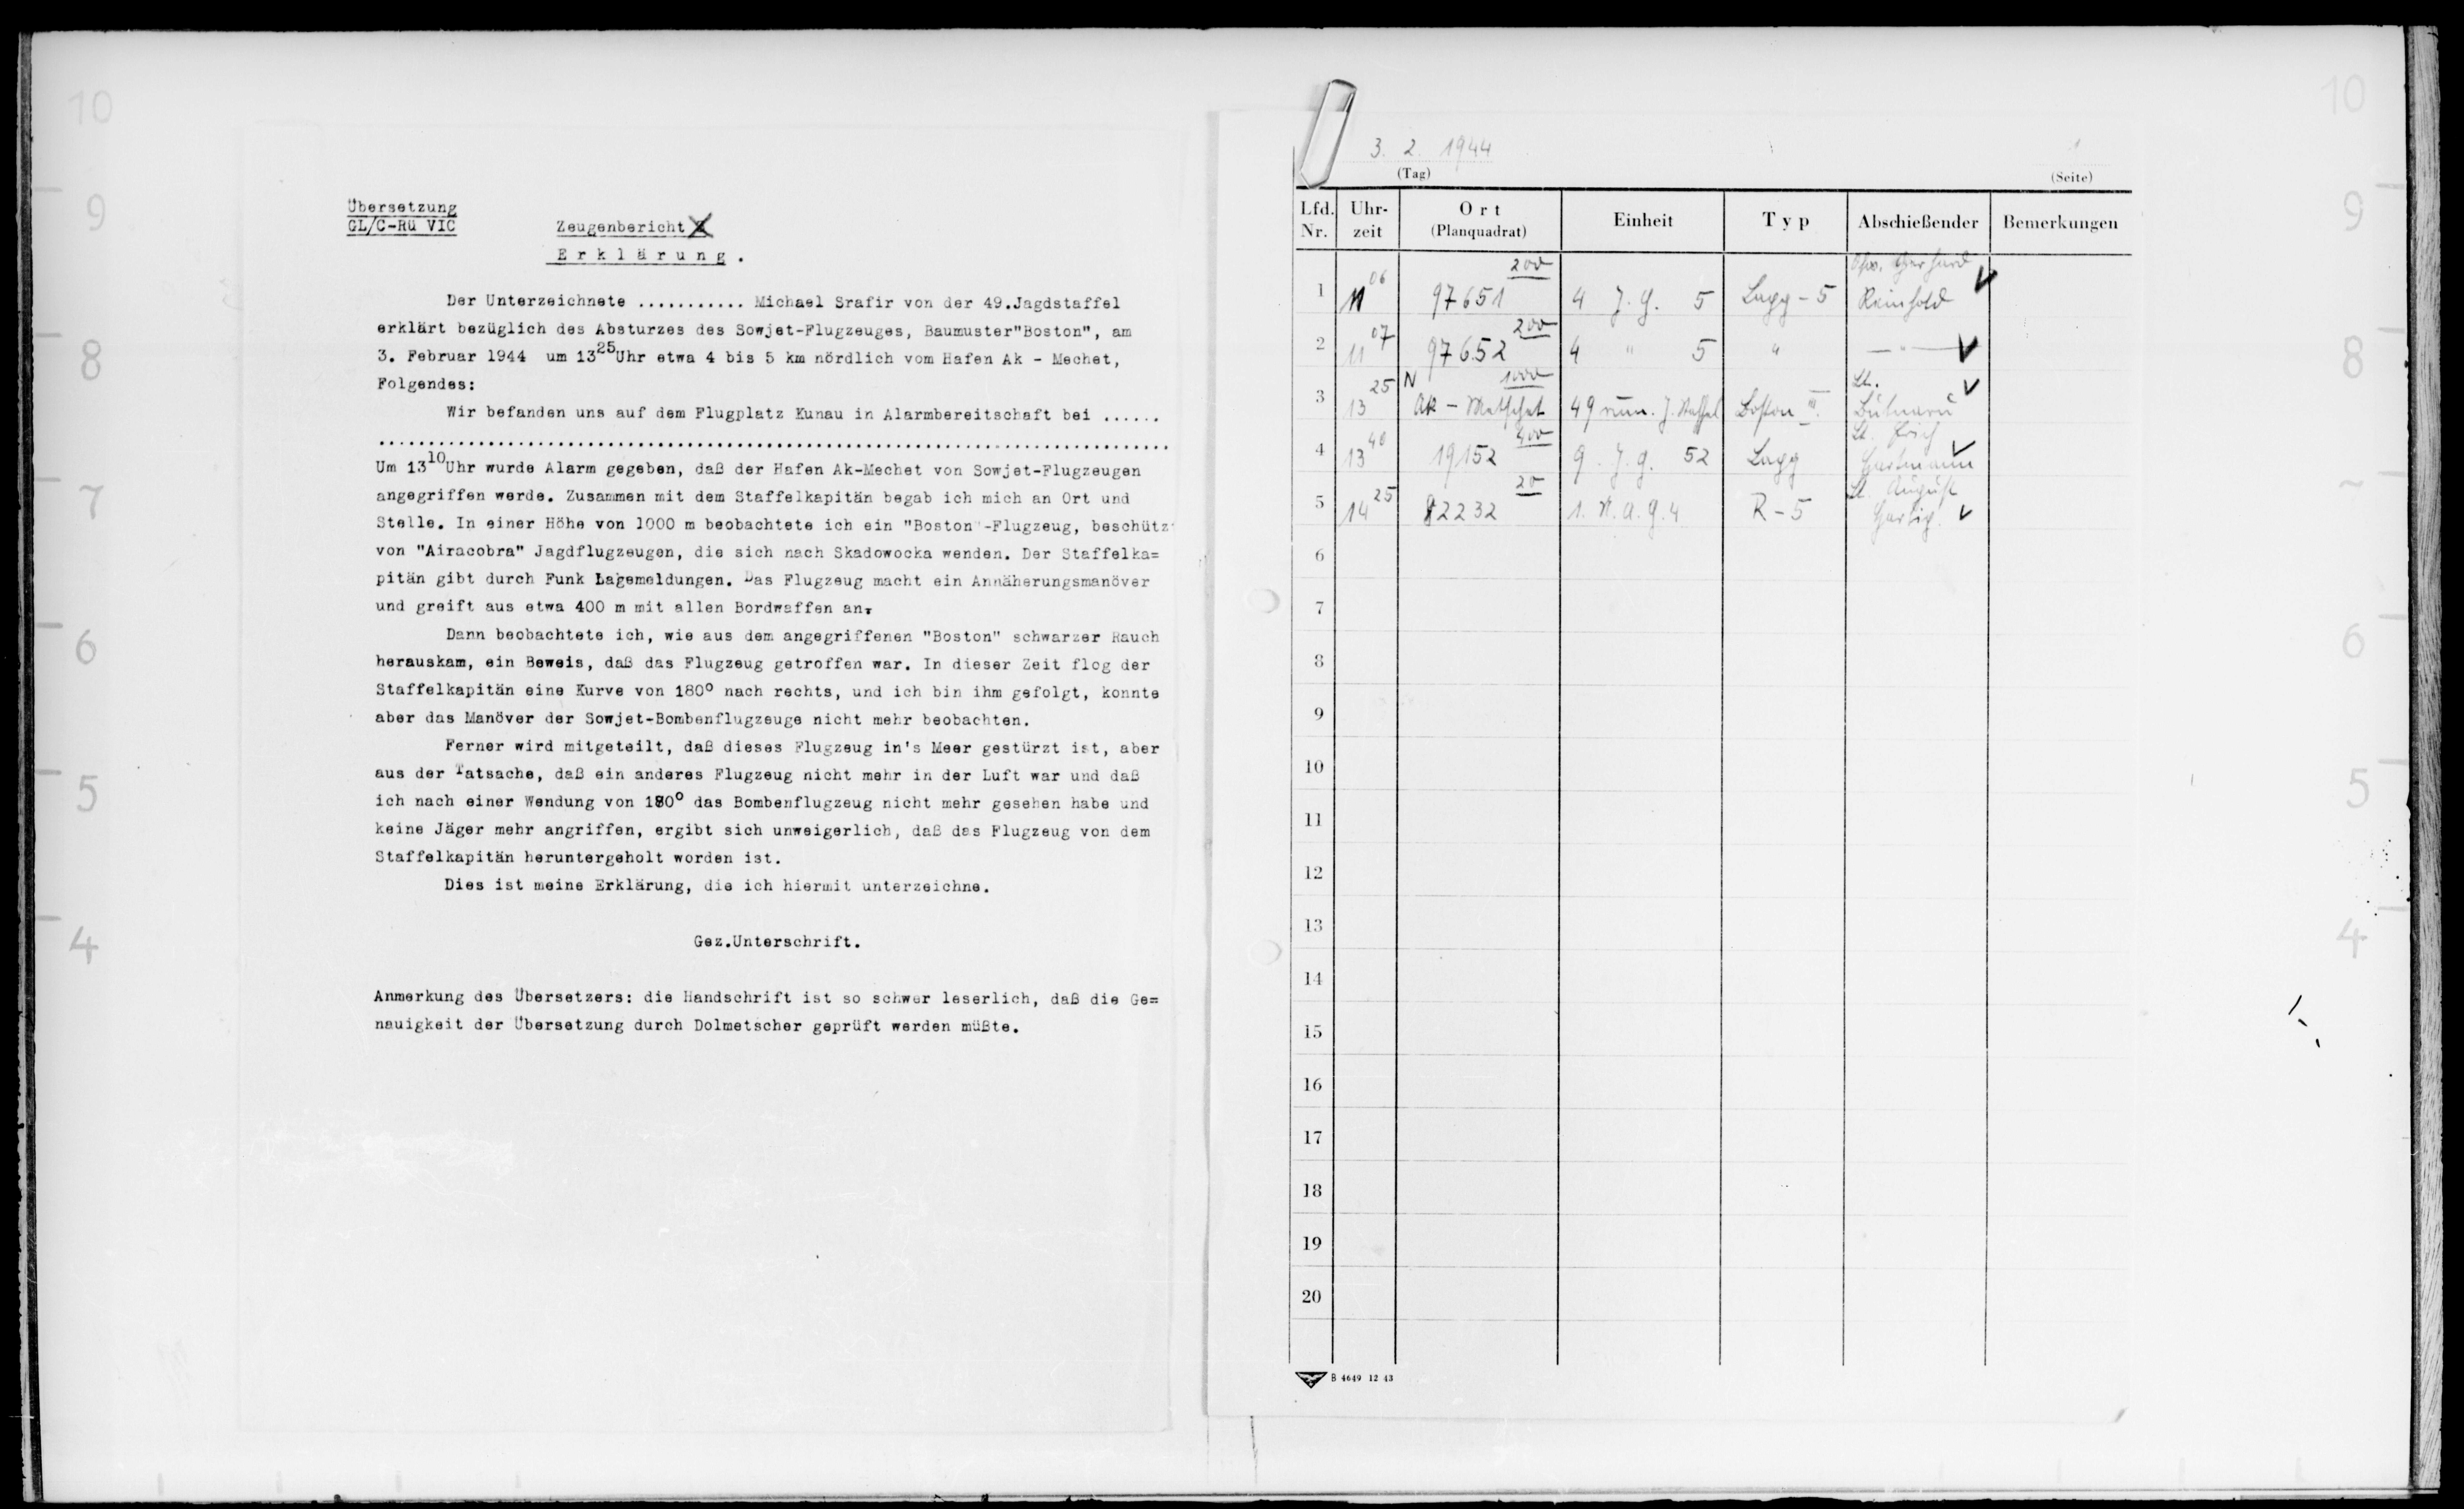 10
9
8
7
6
5
4
Übersetzung
GL/C-Rü VIC
Zeugenbericht
Erklärung.
Der Unterzeichnete ........... Michael Srafir von der 49.Jagdstaffel
erklärt bezüglich des Absturzes des Sowjet-Flugzeuges, Baumuster"Boston", am
3. Februar 1944 um 13 25 Uhr etwa 4 bis 5 km nördlich vom Hafen Ak - Mechet,
Folgendes:
Wir befanden uns auf dem Flugplatz Kunau in Alarmbereitschaft bei ......
................................................................................
Um 13 10 Uhr wurde Alarm gegeben, daß der Hafen Ak-Mechet von Sowjet-Flugzeugen
angegriffen werde. Zusammen mit dem Staffelkapitän begab ich mich an Ort und
Stelle. In einer Höhe von 1000 m beobachtete ich ein "Boston"-Flugzeug, beschütz
von "Airacobra" Jagdflugzeugen, die sich nach Skadowocka wenden. Der Staffelka=
pitän gibt durch Funk Lagemeldungen. Das Flugzeug macht ein Annäherungsmanöver
und greift aus etwa 400 m mit allen Bordwaffen an.
Dann beobachtete ich, wie aus dem angegriffenen "Boston" schwarzer Rauch
herauskam, ein Beweis, daß das Flugzeug getroffen war. In dieser Zeit flog der
Staffelkapitän eine Kurve von 180° nach rechts, und ich bin ihm gefolgt, konnte
aber das Manöver der Sowjet-Bombenflugzeuge nicht mehr beobachten.
Ferner wird mitgeteilt, daß dieses Flugzeug in's Meer gestürzt ist, aber
aus der Tatsache, daß ein anderes Flugzeug nicht mehr in der Luft war und daß
ich nach einer Wendung von 180° das Bombenflugzeug nicht mehr gesehen habe und
keine Jäger mehr angriffen, ergibt sich unweigerlich, daß das Flugzeug von dem
Staffelkapitän heruntergeholt worden ist.
Dies ist meine Erklärung, die ich hiermit unterzeichne.
Gez.Unterschrift.
Anmerkung des Übersetzers: die Handschrift ist so schwer leserlich, daß die Ge=
nauigkeit der Übersetzung durch Dolmetscher geprüft werden müßte.
3. 2. 1944
(Tag)
1
(Seite)
Lfd. Nr. Uhr-zeit Ort (Planquadrat) Einheit Typ Abschießender Bemerkungen
1 11 06 97651 200 4 J.G. 5 Lagg-5 Gerhard Reinhold
2 11 07 97652 200 4 " 5 " — " —
3 13 25 N Ak-Metschet 1000 49 rum. J. Staffel Boston III. Lt.
4 13 40 19152 400 9. J.G. 52 Lagg Lt. Erich Hartmann
5 14 25 82232 20 1. N.A.G. 4 R-5 Lt. August
6
7
8
9
10
11
12
13
14
15
16
17
18
19
20
B 4649 12 43
10
9
8
6
5
4